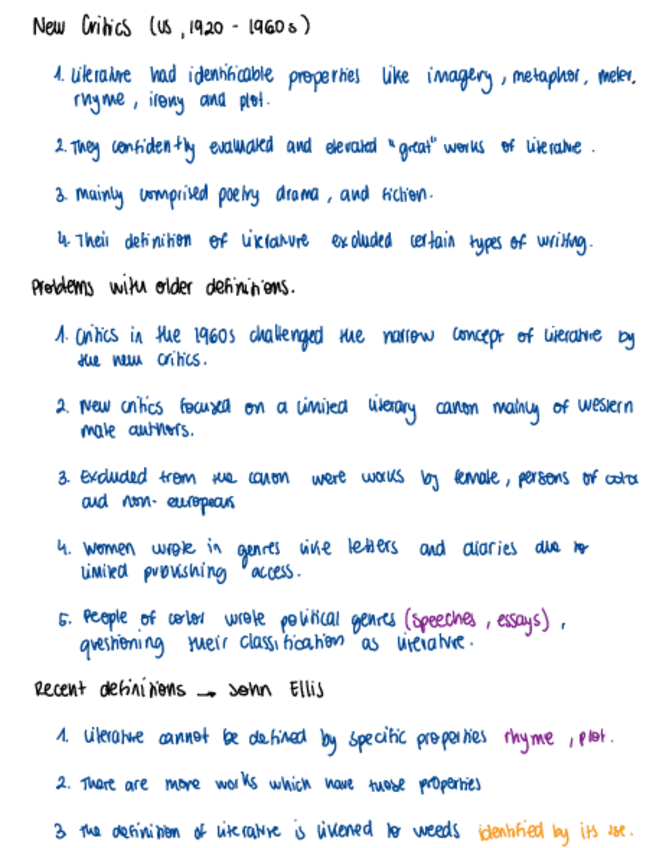 New Critics (US, 1920 - 1960s)
1. Literature had identificable properties like imagery, metaphor, meter,
rhyme, irony and plot.
2. They confidently evaluated and elevated "great" works of literature.
3. Mainly comprised poetry drama, and fiction.
4. Their definition of literature excluded certain types of writing.
Problems with older definitions.
1. Critics in the 1960s challenged the narrow concept of literature by
the new critics.
2. New critics focused on a limited literary canon mainly of western
male authors.
3. Excluded from the canon were works by female, persons of color
and non-european
4. Women wrote in genres like letters and diaries due to
limited publishing access.
5. People of color wrote political genres (speeches, essays),
questioning their classification as literature.
Recent definitions → John Ellis
1. Literature cannot be defined by specific properties rhyme, plot.
2. There are more works which have those properties
3 The definition of literature is likened to weeds identified by its use.